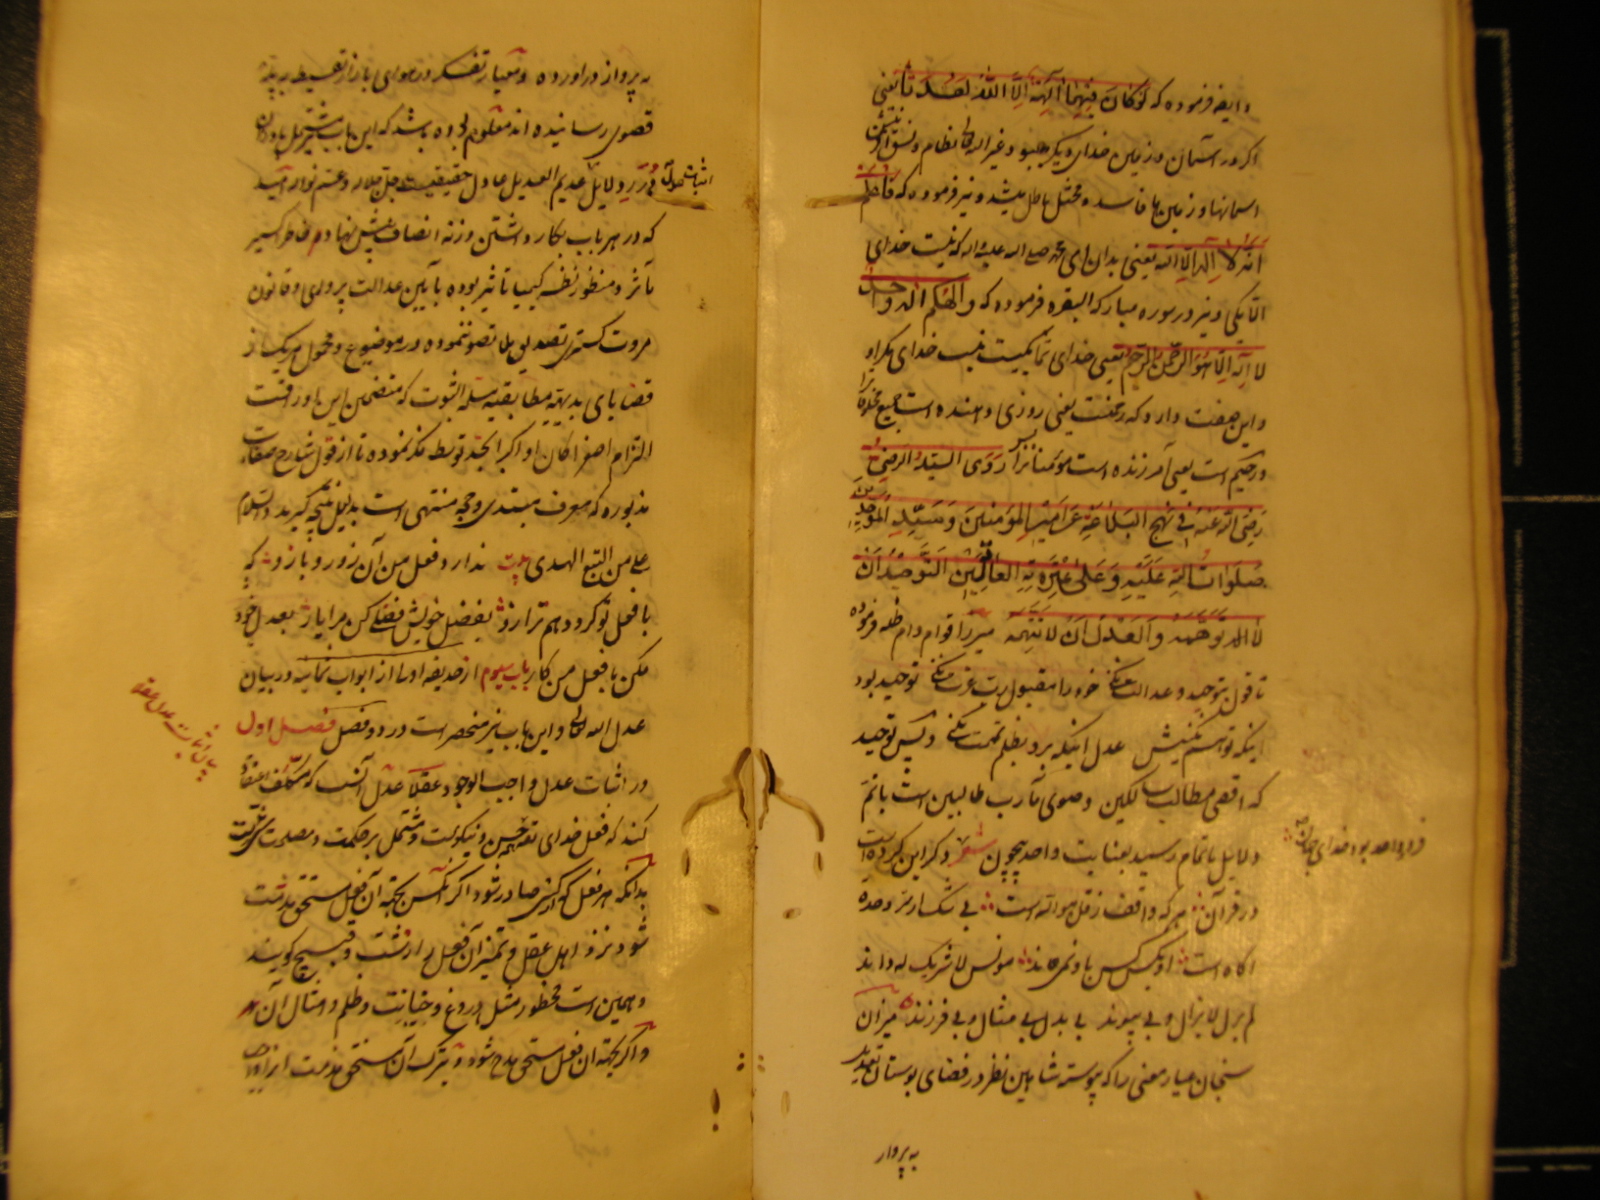 و ایضا فرموده که لَوْ کانَ فِیهِما آلِهَةٌ إِلَّا اللهُ لَفَسَدَتا یعنی
اگر در آسمان و زمین خدای دیگر میبود غیر الله تعالی نظام و نسق
آسمانها و زمین ها فاسد و مختل و باطل میشد و نیز فرموده که فَاعْلَمْ
أَنَّهُ لا إِلهَ إِلَّا الله یعنی بدان ای محمد صلی الله علیه و آله که نیست خدای
الا یکی و نیز در سوره مبارکه البقره فرموده که وَ إِلهُکُمْ إِلهٌ واحِدٌ
لا إِلهَ إِلَّا هُوَ الرَّحْمنُ الرَّحِیمُ یعنی خدای شما یکیست نیست خدای مگر او
و این صفت دارد که رحمنست یعنی روزی دهنده است جمیع مخلوقات را
و رحیم است یعنی آمرزنده است مؤمنانرا رَوَی السَیّدُ الرَضِیُّ
رَضِیَ الله عَنْهُ فِی نَهْجِ البَلاغَةِ عَنْ أَمِیرِ المُؤمِنِینَ وَ سَیِّدِ المُوَحِّدِینَ
صَلَواتُ اللهِ عَلَیْهِ وَ عَلی عِتْرَتِهِ العالِمِینَ التَّوحِیدُ أَنْ
لا تَتَوَهَّمَهُ وَ العَدْلُ أَنْ لا تَتَّهِمَهُ میرزا قوام دام ظله فرموده
تا قول بتوحید و عدالت نکنی خود را مقبول رب عزت نکنی توحید بود
اینکه توهم نکنیش عدل اینکه برو بظلم تهمت نکنی و پس توحید
که اقصی مطالب سالکین و صوی مآرب طالبین است باتم
دلایل باتمام رسید بعنایت واحد بیچون شعر ذکر این کرده است
در قرآن هر که واقف ز قل هو الله است
آگاه است او بکس کس باو نمی ماند مونس لا شریک له داند
لم یزل لا یزال و بی پیوند بی بدل بی مثال و بی فرزند میزان
سنجان عیار معنی را که پیوسته شاهین نظر در فضای بوستان
به پرواز
فرد و واحد بود خدای جهان
به پرواز در آورده و معیار تفکر در هوای باز از
قصوی رسانیده اند معلوم بوده باشد که این باب
در و دلایل عدیم العدیل عادل حقیقیست جل جلاله و عم نواله
اثبات عدل
که در هر باب بکار داشتن وزنه انصاف پیش نهاد خاطر اکسیر
تأثر و منظور نظر کیمیا تأثیر بوده بآیین عدالت پروری و قانون
مروت گستری تصدیق بلا تصور ننموده در موضوع و محمول هر یک از
قضایای بدیهیه مطابقیه مسلمة الثبوت که متضمن این
التزام اصغر امکان او اکبر ایجد توسط مکرر نموده تا از قول شارح
مذبوره که معرف مبتدی و حجه منتهی است بدلیل نتیجه گیرند و السلام
علی من التبع الهدی بیت ندارد فعل من آن زور و بازو که
با فعل تو گردد هم ترازو بفضل خویش فضلی کن مرا یار بعدل خود
مکن با فعل من کار باب سیوم از حدیقه اولی از ابواب ثمانیه در بیان
عدل الله تعالی و این باب نیز منحصر است در دو فصل فصل اول
در اثبات عدل واجب الوجود عقلا عدل آنست که مکلف اعتقاد
کند که فعل خدای تعالی همه حسن و نیکوست و مشتمل بر حکمت و مصلحت
بدانکه هر فعل که از کسی صادر شود اگر آنکس بجهة آن فعل مستحق مذمت
شود نزد اهل عقل و تمیز آن فعل را زشت و قبیح گویند
و همین است محظور مثل دروغ و خیانت و ظلم و امثال آن
و اگر بجهة آن فعل مستحق مدح شود و بترک آن مستحق مذمت
بیان اثبات عدل عقلا